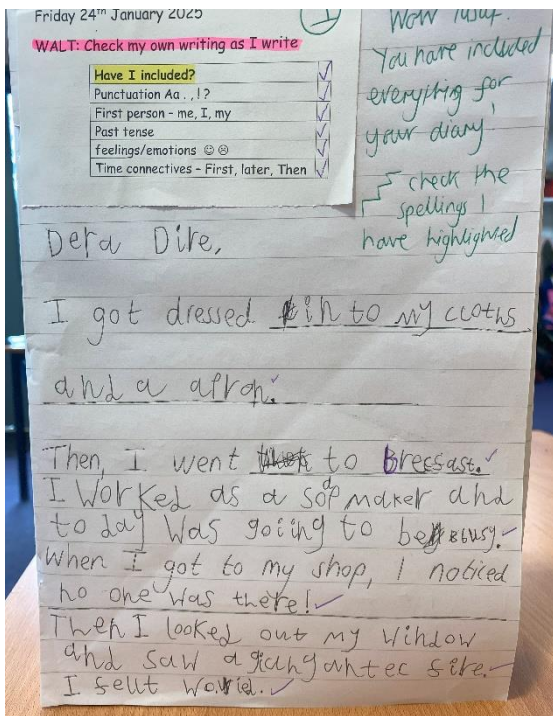 Friday 24th January 2025
WALT: Check my own writing as I write
Have I included?
Punctuation Aa . , ! ?
First person - me, I, my
Past tense
feelings/emotions ☺ ☹
Time connectives - First, later, Then
1
Wow Yusuf.
You have included
everything for
your diary.
check the
spellings I
have highlighted
Dera Dire,
I got dressed in to my cloths
and a apron.
Then, I went to Brecsast.
I worked as a soap maker and
to day was going to be Busy.
When I got to my shop, I noticed
no one was there!
Then I looked out my window
and saw a giangantec fire.
I fellt worid.